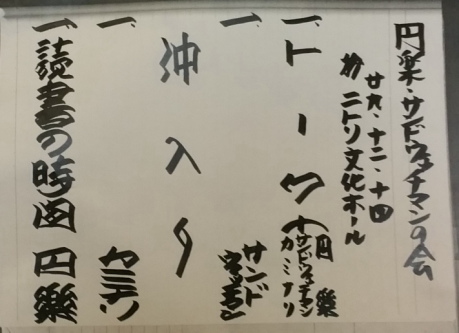 円楽・サンドウィッチマンの会
廿九、十二、十四
於 ニトリ文化ホール
一、トーク(円楽
サンドウィッチマン
カミナリ
一、サンド
ウィッチマン
仲入り
一、カミナリ
一、読書の時間 円樂